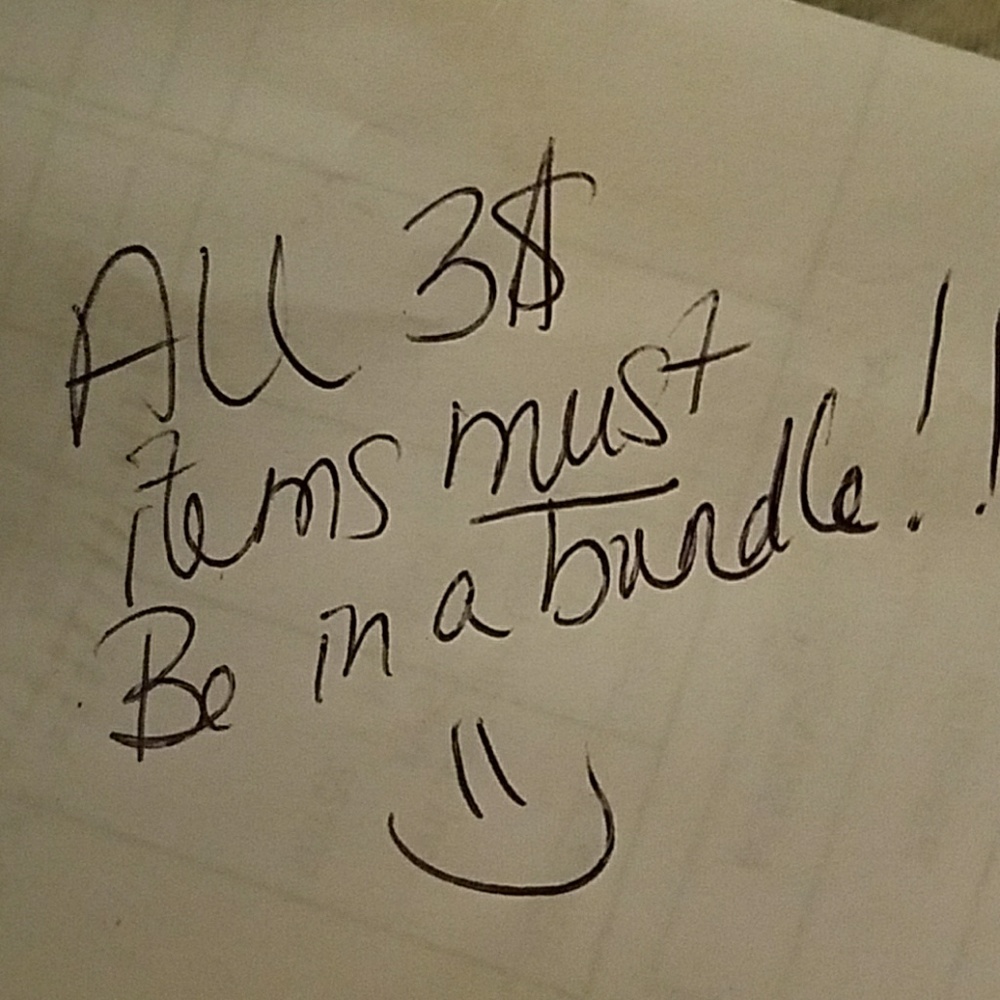 All 3$
items must
Be in a bundle!!